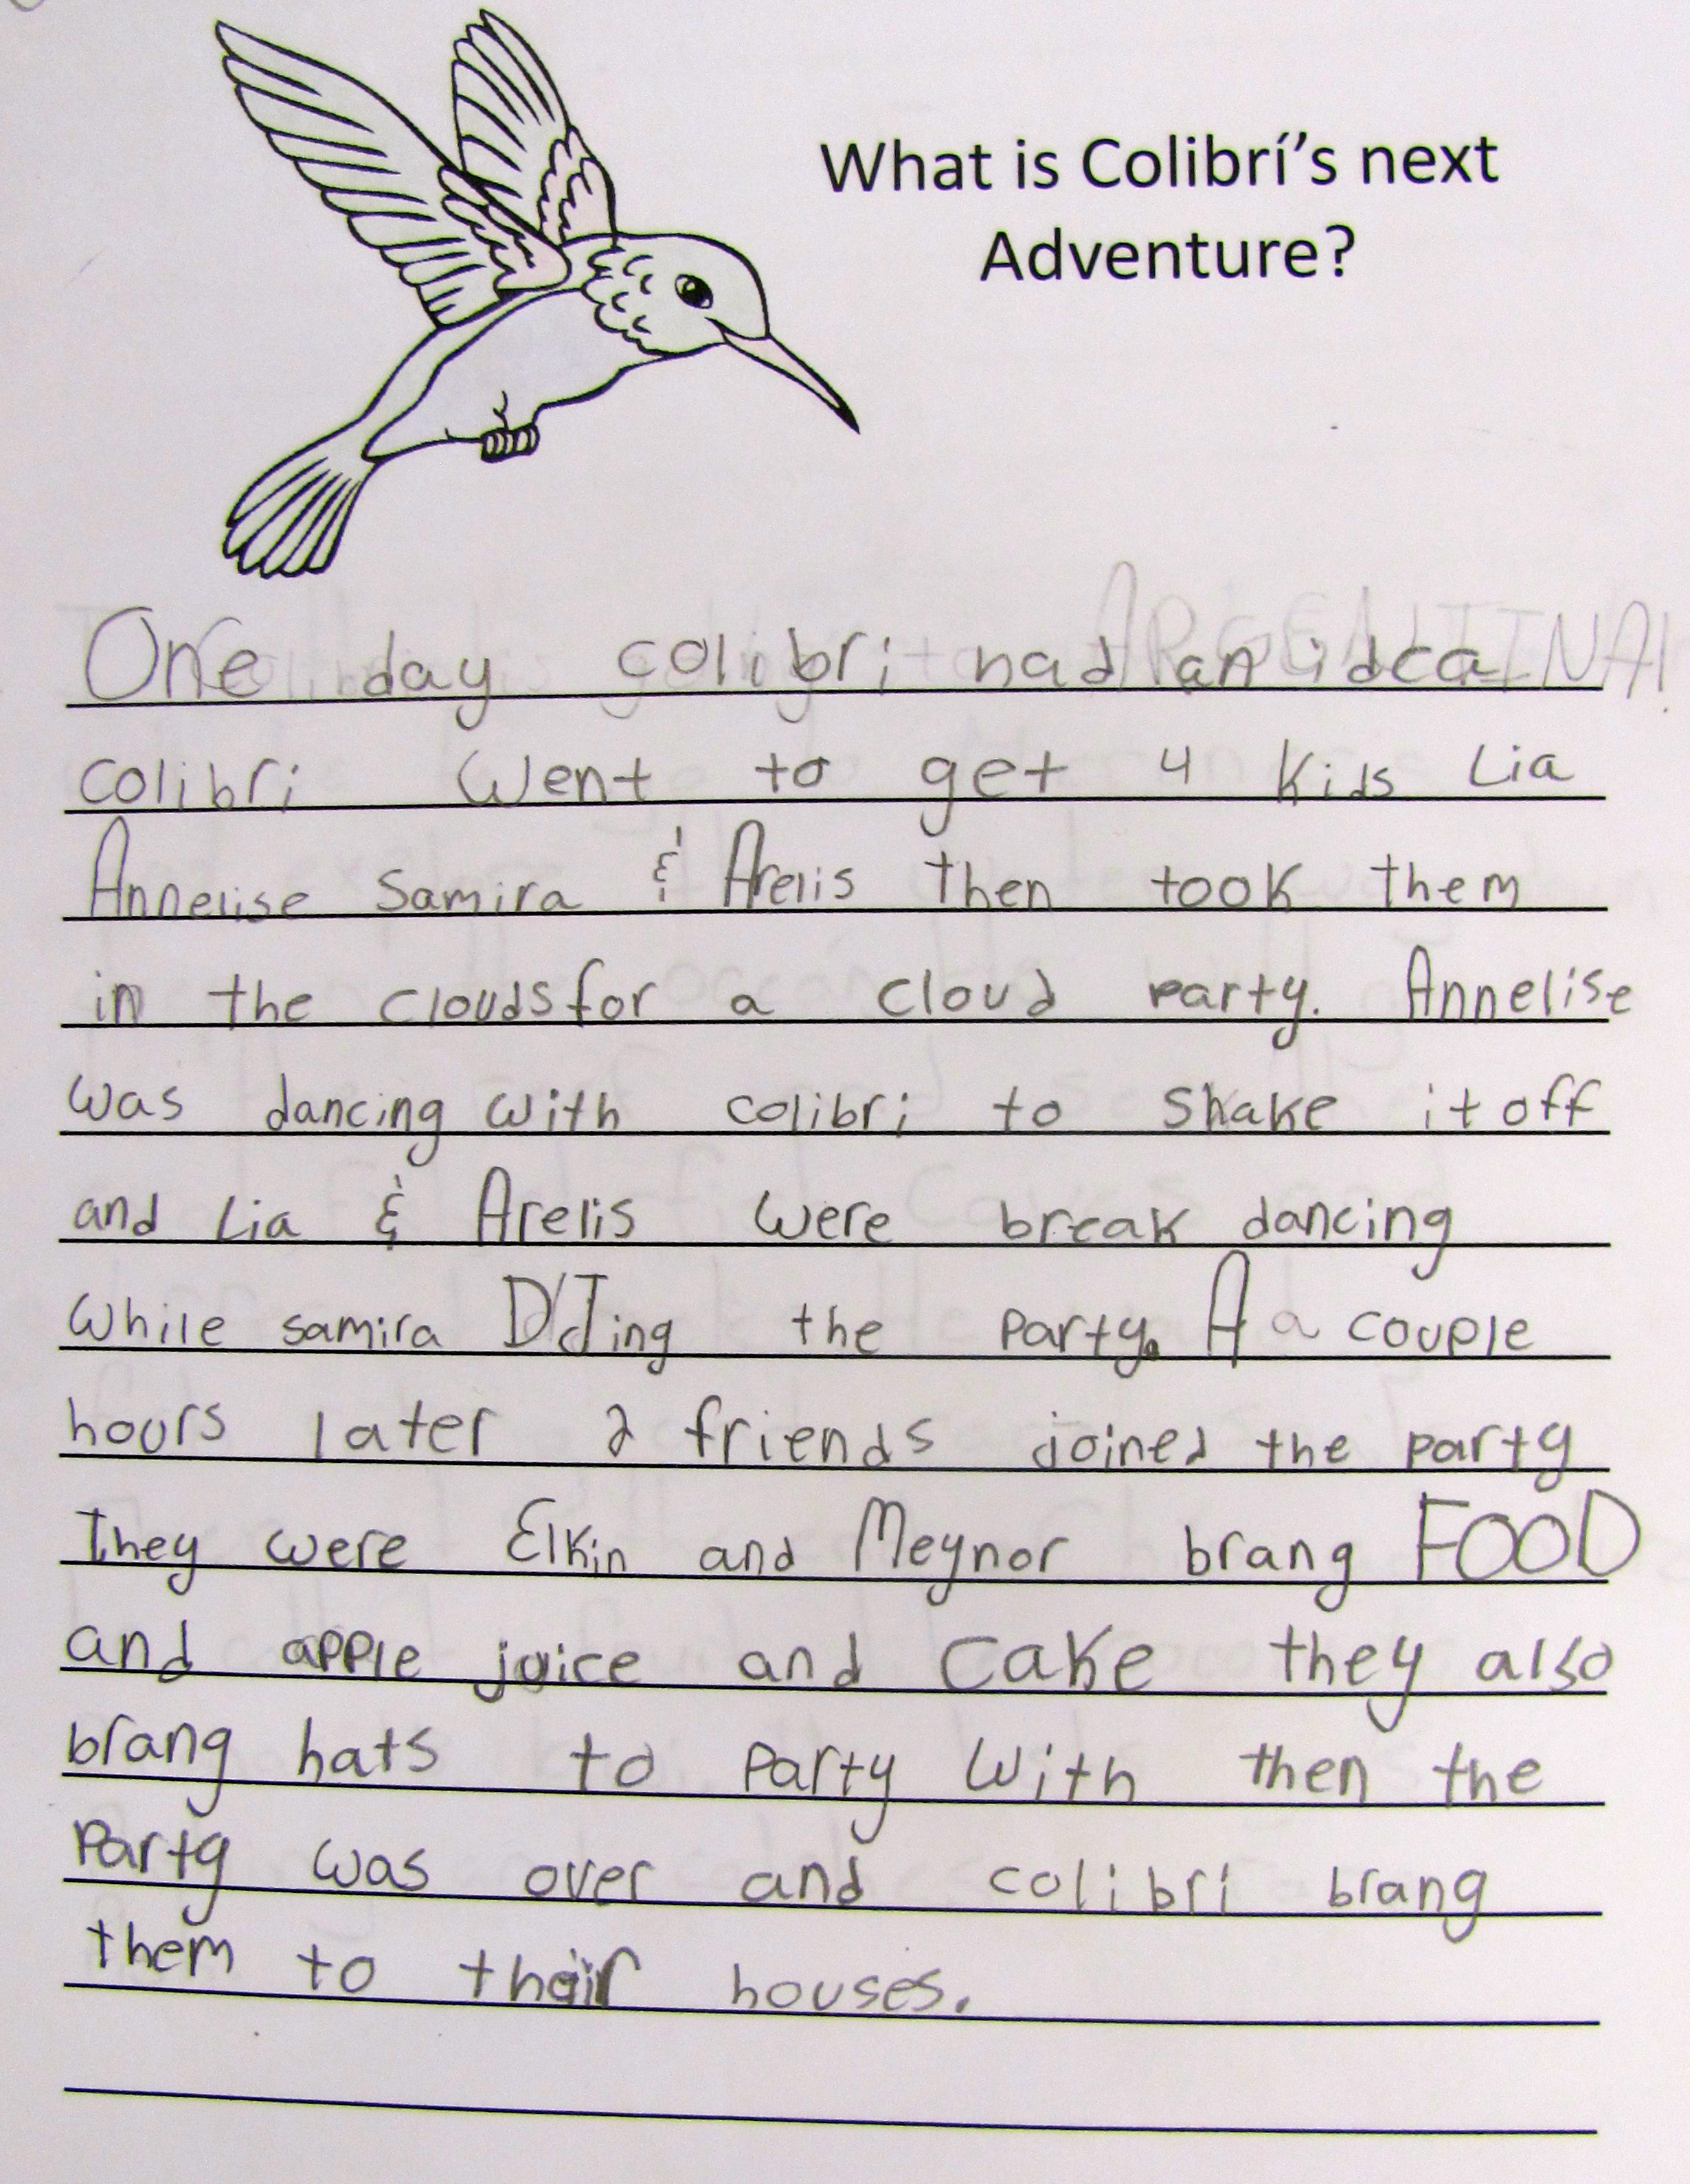 What is Colibrí's next
Adventure?
One day colibri had an idea
colibri Went to get 4 kids Lia
Annelise Samira & Arelis then took them
in the clouds for a cloud party. Annelise
was dancing with colibri to shake it off
and Lia & Arelis were break dancing
While samira D'Jing the party. A a couple
hours later 2 friends joined the party
They were Elkin and Meynor brang FOOD
and apple juice and cake they also
brang hats to party with then the
Party was over and colibri brang
them to their houses.